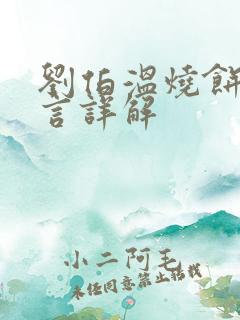 劉伯溫燒餅
言詳解
小二阿毛
未經同意禁止搭載